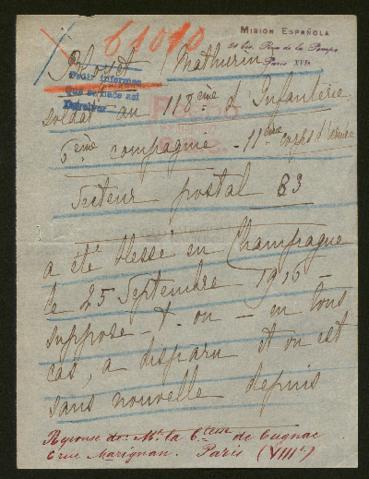 61010
MISION ESPAÑOLA
21 bis, Rue de la Pompe
Paris XVIe
Blouet (Mathurin)
Pedir informes
soldat au 118eme d'Infanterie
5eme compagnie - 11eme corps d'armée
Secteur postal 83
a été blessé en Champagne
le 25 Septembre 1915 -
suppose - t - on - en tous
cas, a disparu et on est
sans nouvelle depuis
Réponse à: Me la Ctesse de Cugnac
6 rue Marignan. Paris (VIIIe)